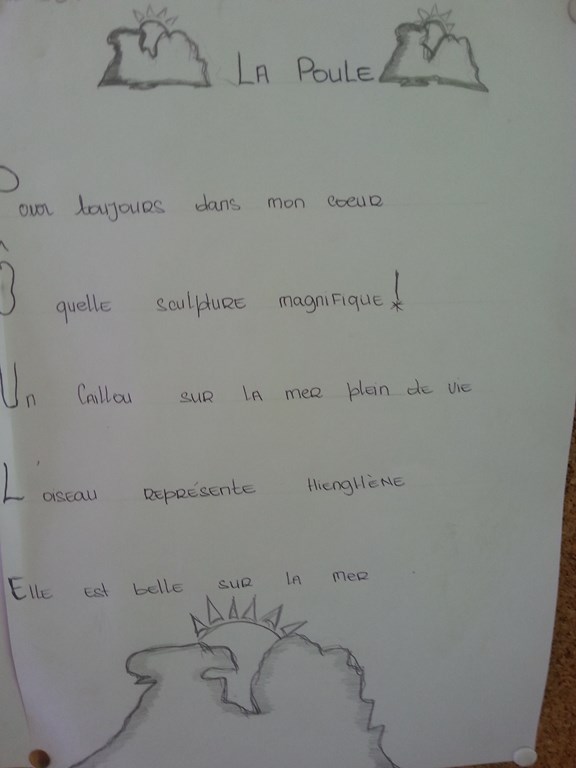 LA POULE
Pour toujours dans mon coeur
Ô quelle sculpture magnifique !
Un Caillou sur la mer plein de vie
L'oiseau représente Hiengllène
Elle est belle sur la mer